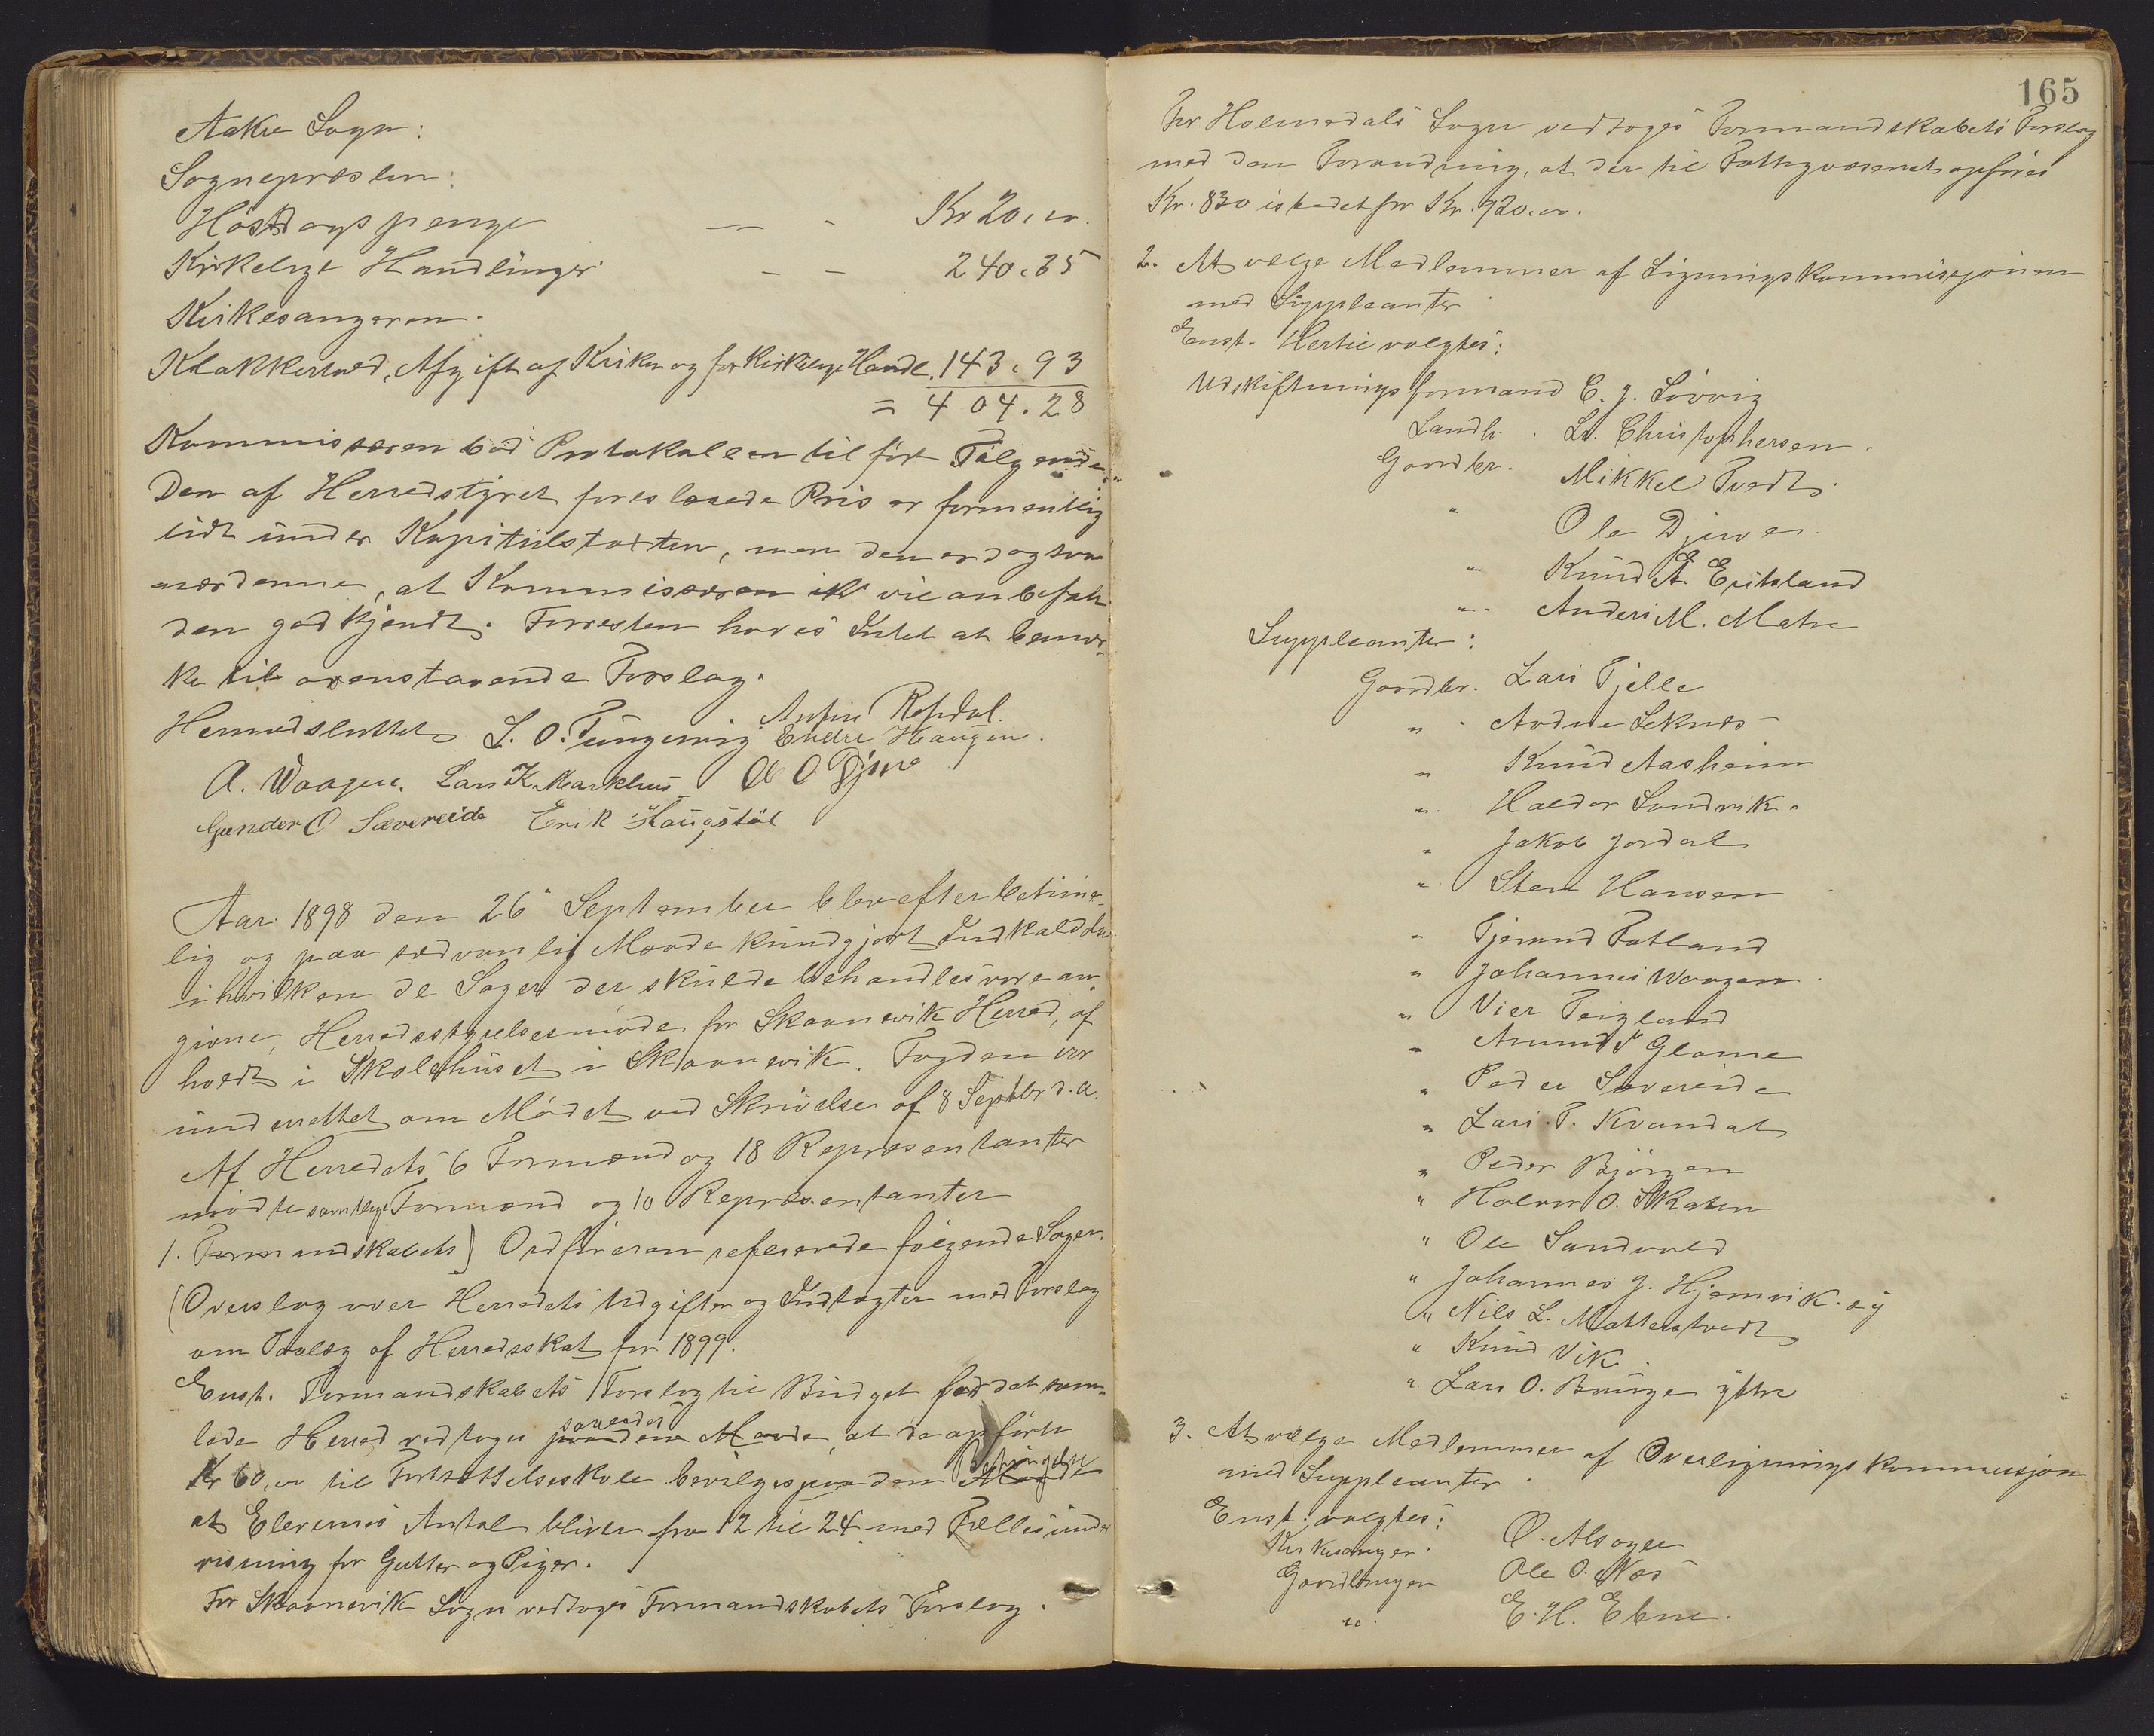 Aakre Sogn:
Sognepræsten:
Höstdagspenge — - Kr 20,00.
Kirkelige Handlinger - - 240.35
Kirkesangeren.
Klokkertold, Afgift af Kirken og for Kirkelige Handl. 143.93
= 404.28
Kommissæren bød Protokollen tilført Følgende:
Den af Herredstyret foreslaaede Pris er formentlig
lidt under Kapitelstaxten, men den er dog saa
nær denne, at Kommissæren vil anbefale
den godkjendt. Forresten haves Intet at bemær-
ke til ovenstaaende Forslag.
Hermed sluttet L. O. Tungesvig Endre Haugen.
A. Waagen. Lars K. Markhus O O Djuve
Gunder O Sævereide Erik Haugstøl
Aar 1898 den 26 September blev efter betime-
lig og paa sædvanlig Maade kundgjort Indkaldelse
i hvilken de Sager der skulde behandles vare an-
givne, Herredsstyrelsesmøde for Skaanevik Herred, af
holdt i Skolehuset i Skaanevik. Fogden var
underrettet om Mødet ved Skrivelse af 8 Septbr d.a.
Af Herredets 6 Formænd og 18 Repræsentanter
mødte samtlige Formænd og 10 Repræsentanter
1. Formandskabets] Ordføreren refererede følgende Sager.
(Overslag over Herredets Udgifter og Indtægter med Forslag
om Paalæg af Herredsskat for 1899.
Enst. Formandskabets Forslag til Budget for det sam-
lede Herred vedtoges saaledes paa den Maade, at de opførte
Kr 60,00 til Fortsættelsesskole bevilges paa den Betingelse
at Elevernes Antal bliver fra 12 til 24 med Fællesunder
visning for Gutter og Piger.
For Skaanevik Sogn vedtoges Formandskabets Forslag.
165
For Holmedals Sogn vedtoges Formandskabets Forslag
med den Forandring, at der til Fattigvæsenet opføres
Kr. 830 istedet for Kr. 720.00.
2. At vælge Medlemmer af Ligningskommissjonen
med Suppleanter
Enst. Hertil valgtes:
Udskiftningsformand C. J. Løvvig
Landh. L. Christophersen.
Gaardbr. Mikkel Tvedt
" Ole Djuve.
" Knud A. Eritsland
" Anders M. Matre
Suppleanter:
Gaardbr. Lars Fjelle
" Aadne Leknes
" Knud Aasheim
" Haldor Sandvik.
" Jakob Jordal
" Sten Hansen
" Tjerand Fatland
" Johannes Waagen.
" Vier Teigland
" Amund Glame
" Peder Sævereide
" Lars T. Kvandal
" Peder Bjørgen
" Halvor O. Skaten
" Ole Sandvold
" Johannes J. Hjemvik. øy
" Nils L. Matterstvedt
" Knud Vik.
" Lars O. Bauge ytre
3. At vælge Medlemmer af Overligningskommissjon
med Suppleanter.
Enst. valgtes:
Kirkesanger. O. Alsager
Gaardbruger Ole O. Næs
" E. H. Ebne.